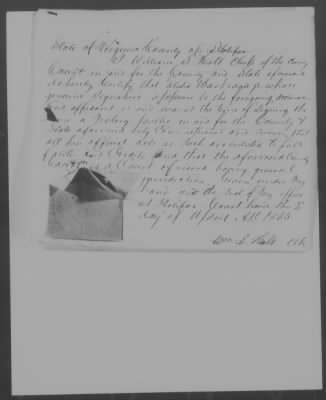 State of Virginia County of Halifax
I William S. Holt Clerk of the County
Court in and for the County and State aforesaid
do hereby Certify that whose
genuine Signature appears to the foregoing
and affidavit is and was at the time of Signing the
same a Notary public in and for the County &
State aforesaid duly Commissioned and Sworn, that
all his official acts as Such are entitled to full
faith and Credit, and that the aforesaid County
Court is a Court of record having general
jurisdiction. Given under my
hand and the Seal of my office
at Halifax Court house the
day of April AD
Wm S. Holt Clk